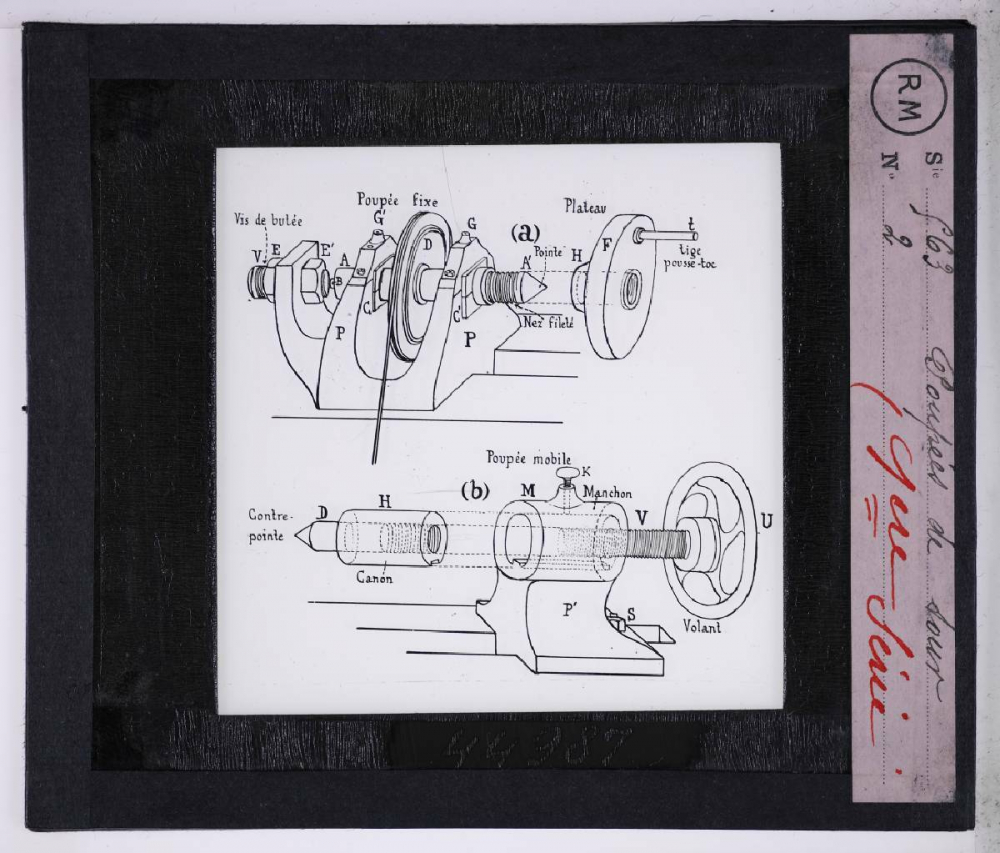 Poupée fixe
Vis de butée
G'
G
Plateau
V E E' A B
D
(a)
Pointe
A'
H
F
t
tige
pousse-toc
C
C'
Nez fileté
P
P
Poupée mobile
K
(b)
M
Manchon
H
D
V
U
Contre-
pointe
Canon
P'
S
Volant
44987
RM
Sie 563 Poupées de tour
No 2